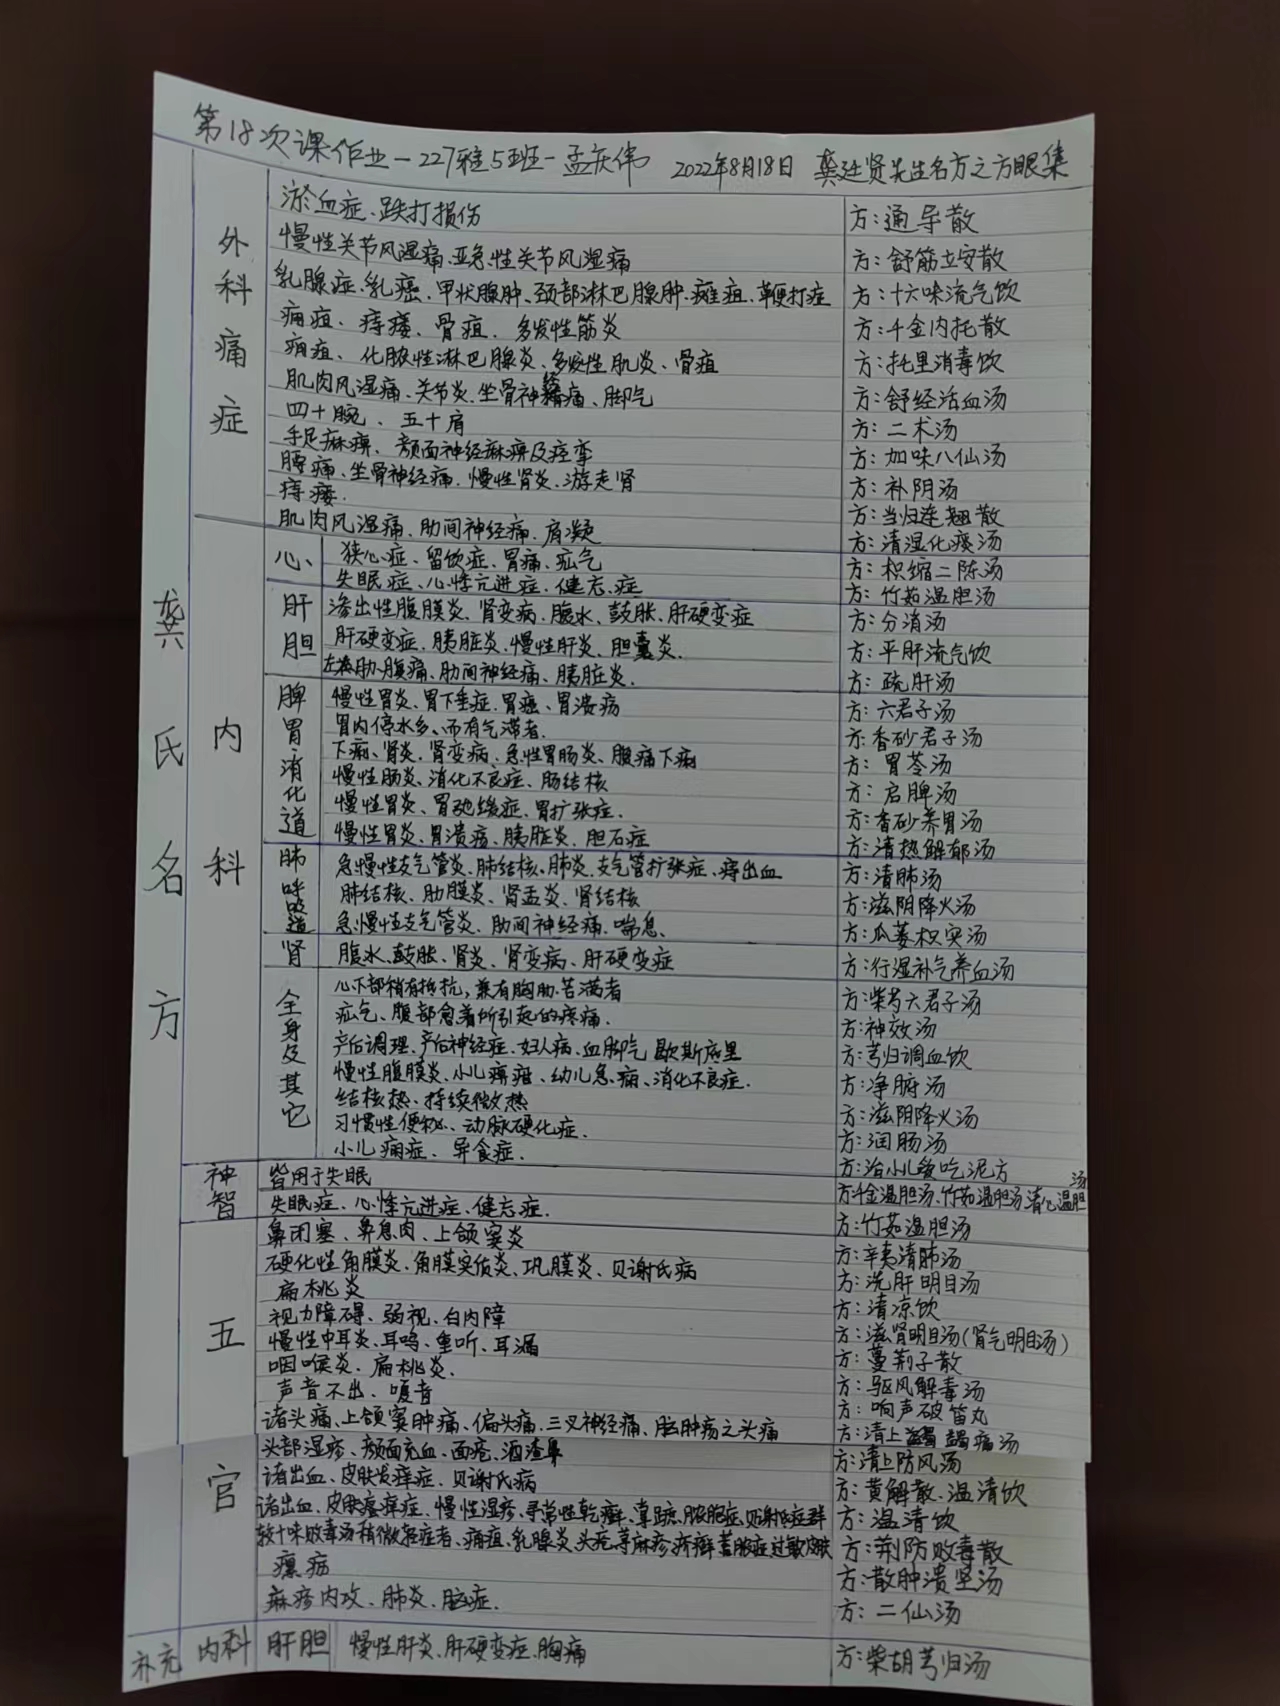 第18次课作业-227雅5班-孟庆伟 2022年8月18日 龚廷贤先生名方之方眼集
龚氏名方
外科痛症
淤血症、跌打损伤 方：通导散
慢性关节风湿痛、亚急性关节风湿痛 方：舒筋立安散
乳腺症、乳癌、甲状腺肿、颈部淋巴腺肿、瘫疽、鞭打症 方：十六味流气饮
痈疽、痔瘘、骨疽、多发性筋炎 方：千金内托散
痈疽、化脓性淋巴腺炎、多发性肌炎、骨疽 方：托里消毒饮
肌肉风湿痛、关节炎、坐骨神经痛、脚气 方：舒经活血汤
四十腕、五十肩 方：二术汤
手足麻痹、颜面神经麻痹及痉挛 方：加味八仙汤
腰痛、坐骨神经痛、慢性肾炎、游走肾 方：补阴汤
痔瘘. 方：当归连翘散
肌肉风湿痛、肋间神经痛、肩凝 方：清湿化痰汤
内科
心、
狭心症、留饮症、胃痛、疝气 方：枳缩二陈汤
失眠症、心悸亢进症、健忘症 方：竹茹温胆汤
肝胆
渗出性腹膜炎、肾变病、腹水、鼓胀、肝硬变症 方：分消汤
肝硬变症、胰脏炎、慢性肝炎、胆囊炎. 方：平肝流气饮
肋腹痛、肋间神经痛、胰脏炎. 方：疏肝汤
脾胃消化道
慢性胃炎、胃下垂症、胃癌、胃溃疡 方：六君子汤
胃内停水多、而有气滞者. 方：香砂君子汤
下痢、肾炎、肾变病、急性胃肠炎、腹痛下痢 方：胃苓汤
慢性肠炎、消化不良症、肠结核 方：启脾汤
慢性胃炎、胃弛缓症、胃扩张症. 方：香砂养胃汤
慢性胃炎、胃溃疡、胰脏炎、胆石症 方：清热解郁汤
肺呼吸道
急慢性支气管炎、肺结核、肺炎、支气管扩张症、痔出血 方：清肺汤
肺结核、肋膜炎、肾盂炎、肾结核 方：滋阴降火汤
急慢性支气管炎、肋间神经痛、喘息、 方：瓜蒌枳实汤
肾
腹水、鼓胀、肾炎、肾变病、肝硬变症 方：行湿补气养血汤
全身及其它
心下部稍有抵抗，兼有胸肋苦满者 方：柴芍六君子汤
疝气、腹部急着所引起的疼痛. 方：神效汤
产后调理、产后神经症、妇人病、血脚气 歇斯底里 方：芎归调血饮
慢性腹膜炎、小儿痹疳、幼儿急痫、消化不良症. 方：净腑汤
结核热、持续微热 方：滋阴降火汤
习惯性便秘、动脉硬化症. 方：润肠汤
小儿痫症、异食症. 方：治小儿爱吃泥方
神智
皆用于失眠 方：千金温胆汤、竹茹温胆汤、清心温胆汤
失眠症、心悸亢进症、健忘症. 方：竹茹温胆汤
五官
鼻闭塞、鼻息肉、上颌窦炎 方：辛夷清肺汤
硬化性角膜炎、角膜实质炎、巩膜炎、贝谢氏病 方：洗肝明目汤
扁桃炎 方：清凉饮
视力障碍、弱视、白内障 方：滋肾明目汤（肾气明目汤）
慢性中耳炎、耳鸣、重听、耳漏 方：蔓荆子散
咽喉炎、扁桃炎. 方：驱风解毒汤
声音不出、嗄音 方：响声破笛丸
诸头痛、上颌窦肿痛、偏头痛、三叉神经痛、脑肿疡之头痛 方：清上蠲痛汤
头部湿疹、颜面充血、面疱、酒渣鼻 方：清上防风汤
诸出血、皮肤发痒症、贝谢氏病 方：黄解散、温清饮
诸出血、皮肤瘙痒症、慢性湿疹、寻常性乾癣、掌跖脓胞症、贝谢氏症群 方：温清饮
较十味败毒汤稍微轻症者、痈疽、乳腺炎、头疮、荨麻疹、疥癣、蓄脓症、过敏皮肤 方：荆防败毒散
瘰疬 方：散肿溃坚汤
麻疹内攻、肺炎、脑症. 方：二仙汤
补充 内科 肝胆 慢性肝炎、肝硬变症、胸痛 方：柴胡芎归汤